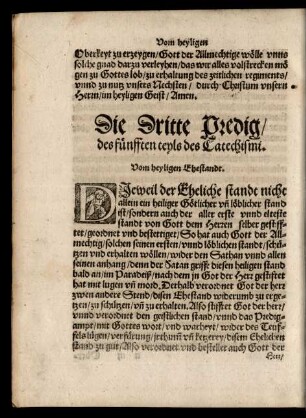 Vom heyligen
Oberkeyt zu erzeygen/ Gott der Allmechtige wölle vnns
solche gnad darzu verleyhen/ das wir alles volstrecken mö
gen zu Gottes lob/ zu erhaltung des zeitlichen regiments/
vnnd zu nutz vnsers Nechsten / durch Christum vnsern
Herrn/ im heyligen Geist / Amen.
Die Dritte Predig/
des fünfften teyls des Catechismi.
Vom heyligen Ehestandt.
DJeweil der Eheliche stande nicht
allein ein heiliger Götlicher vñ löblicher stand
ist/ sondern auch der aller erste vnnd elteste
standt von Gott dem Herren selber gestiff-
tet/ geordnet vnd bestettiget/ So hat auch Gott der All-
mechtig/ solchen seinen ersten/ vnnd löblichen standt/ schü-
tzen vnd erhalten wöllen/ wider den Sathan vnnd allen
seinen anhang/ denn der Satan greiffe disen heiligen stand
bald an/ im Paradeiß/ nach dem jn Got der Herr gestifftet
hat mit lugen vñ mord. Derhalb verordnet Got der herr
zwen andere Stend/ disen Ehestand widerumb zu ergen-
tzen/ zu schützen/ vñ zu erhalten. Also stifftet Got der herr/
vnnd verordnet den geistlichen stand/ vnnd das Predig-
ampt/ mit Gottes wort/ vnd warheyt/ wider des Teuf-
fels lügen/ verfürung/ jrrthumb vñ ketzerey/ disem Ehelichen
stand zu gut/ Also verordnet vnd bestellet auch Gott der
Herr/